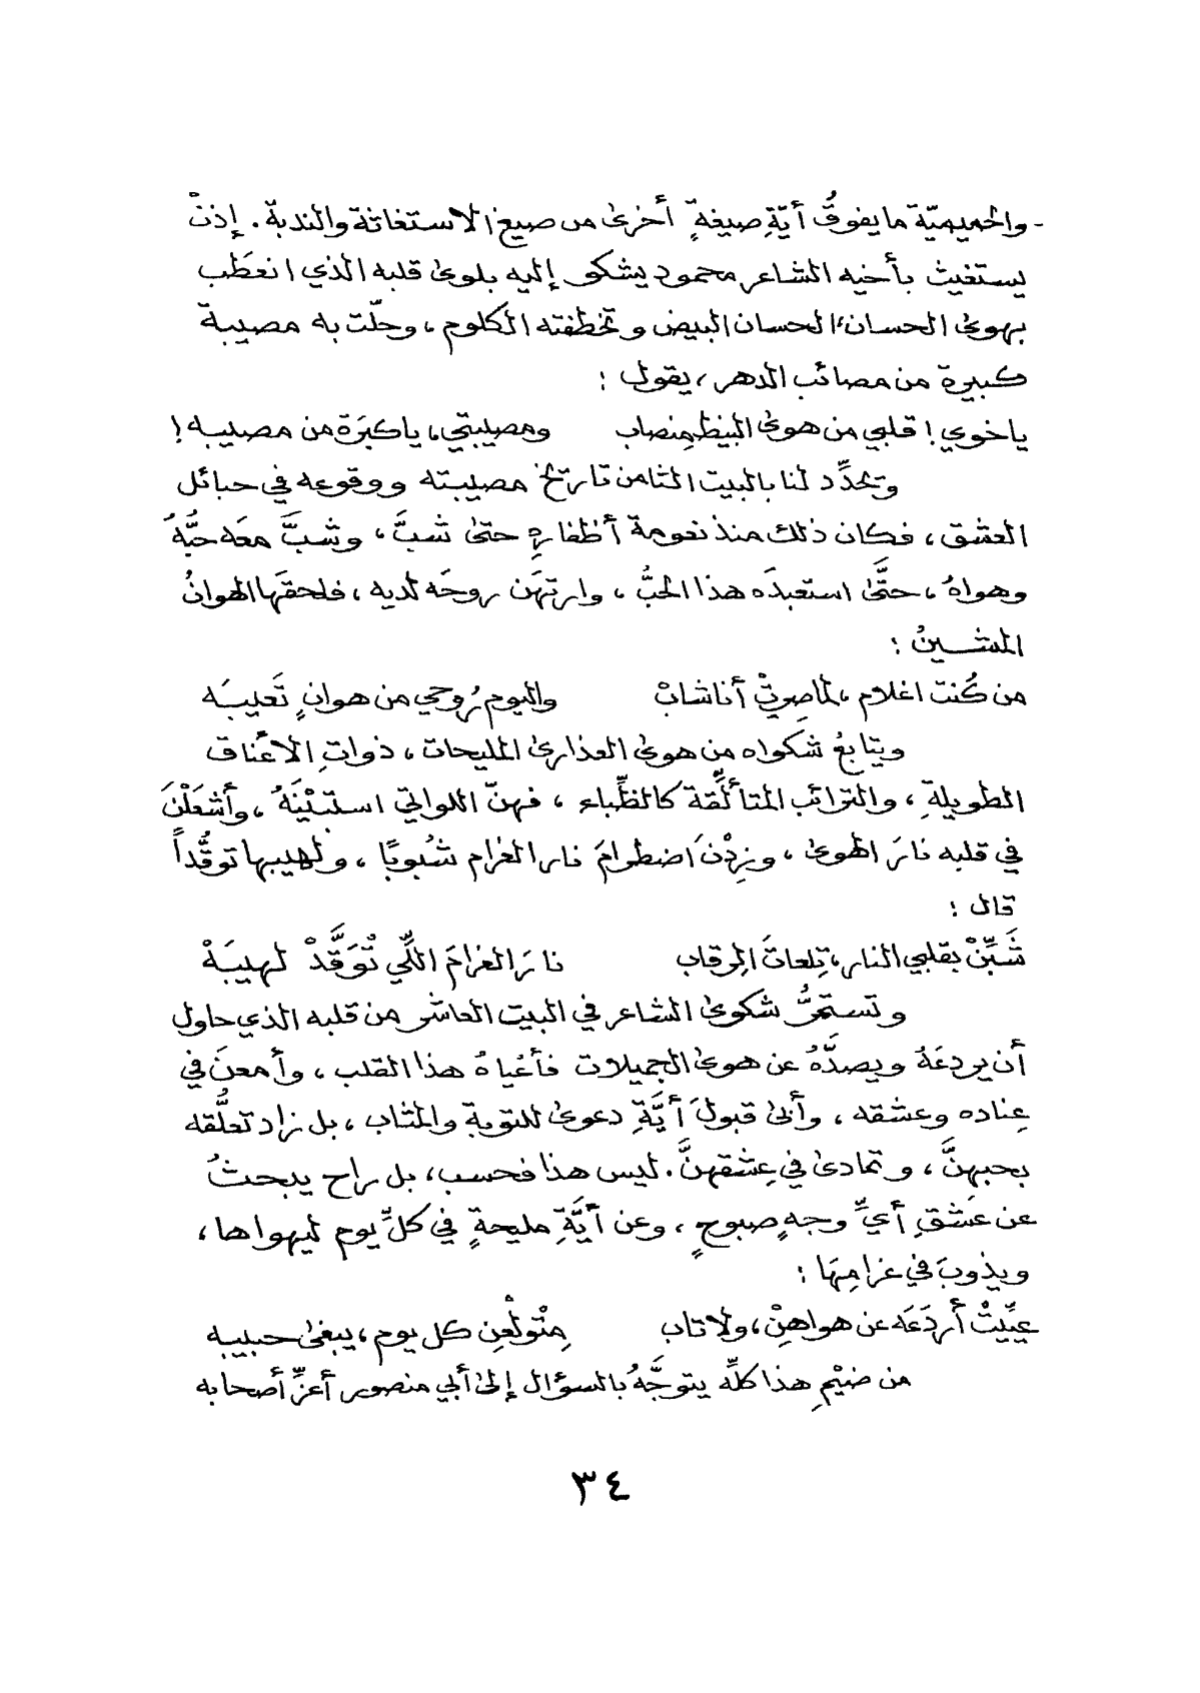 - والحميميّة ما يفوقُ أيّةِ صيغةٍ أخرى من صيغ الاستغاثة والندبة. إذنْ
يستغيث بأخيه الشاعر محمود يشكو إليه بلوى قلبه الذي انعَطَب
بهوى الحسان، الحسان البيض وتخطفته الكلوم، وحلّت به مصيبة
كبيرة من مصائب الدهر، يقول :
ياخوي! قلبي من هوى البيظ مِنصاب ومصيبتي، ياكبرَة من مصيبه!
وتحدِّد لنا بالبيت الثامن تاريخ مصيبته ووقوعه في حبائل
العشق، فكان ذلك منذ نعومة أظفارهِ حتى شبَّ، وشبَّ معَه حبُّهُ
وهواهُ، حتَّى استعبدَه هذا الحبُّ، وارتهَن روحَه لديه، فلحقَها الهوانُ
المشينُ :
من كُنت اغلام، لماصِرتْ أنا شابْ واليوم رُوحي من هوانٍ تَعيبَه
ويتابعُ شكواه من هوى العذارى المليحات، ذواتِ الأعْناق
الطويلةِ، والترائب المتألِّقة كالظِّباء، فهنّ اللواتي استبْيَنَهُ، وأشعَلْنَ
في قلبه نارَ الهوى، وزِدْنَ اضطرامَ نار الغرام شُبوبًا، ولهيبها توقُّداً
قال :
شَبِّنْ بقلبي النار، تِلعاتَ الِرقاب نارَ الغرامَ اللِّي تُوَقَّدْ لهيبَهْ
وتستمرُّ شكوى الشاعر في البيت العاشر من قلبه الذي حاول
أن يردعَهُ ويصدَّهُ عن هوى الجميلات فأعْياهُ هذا القلب، وأمعنَ في
عِناده وعشقه، وأبى قبولَ أيَّةِ دعوى للتوبة والمثاب، بل زاد تعلُّقه
بحبهنَّ، وتمادى في عِشقهنَّ. ليس هذا فحسب، بل راح يبحثُ
عن عَشقِ أيِّ وجهٍ صبوحٍ، وعن أيَّةِ مليحةٍ في كلِّ يوم ليهواها،
ويذوبَ في غرامِهَا :
عيِّيتْ أردَعَه عن هواهِنْ، ولا تاب مِتْولْعِن كل يوم، يبغى حبيبه
من ضيْمِ هذا كلِّه يتوجَّهُ بالسؤال إلى أبي منصور أعزِّ أصحابه
٣٤